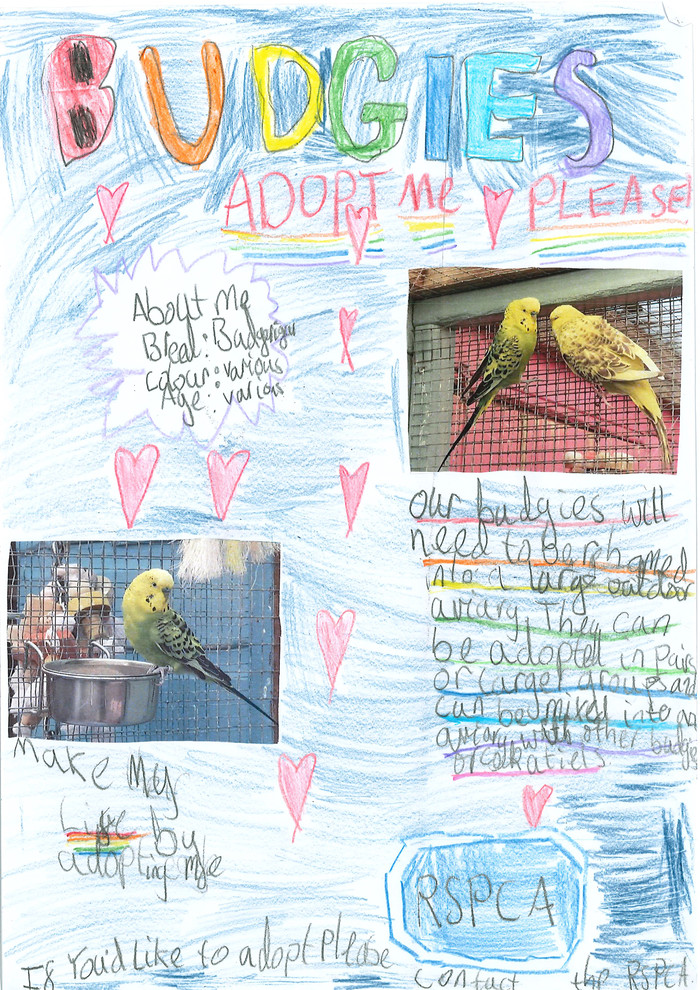 BUDGIES
ADOPT Me PLEASE
About Me
Bread: Budgerigar
Colour: various
Age: various
our budgies will
need to be rehomed
into a large outdoor
aviary, They can
be adopted in pairs
or larger groups and
can be mixed into an
aviary with other budgies
or cokatiels
Make My
Life by
adopting me
RSPCA
If You'd Like to adopt Please
contact the RSPCA